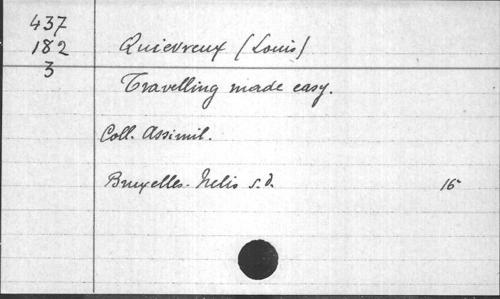 437
182 Quievreux (Louis)
3
Travelling made easy.
Coll. Assimil.
Bruxelles. Nelis s.d. 16